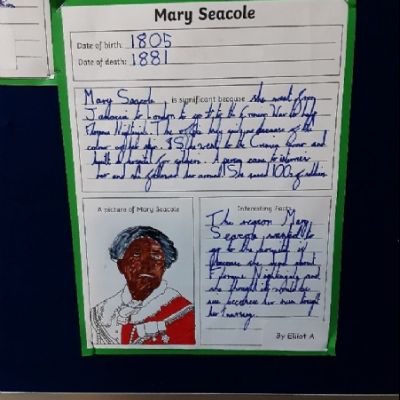 Mary Seacole
Date of birth: 1805
Date of death: 1881
Mary Seacole is significant because she went from
Jamaicia to London to go to the Crimean War to help
Florence Nightingale. The of the
colour of her skin. So She went to the Crimean war and
built a hospital for soldiers. A came to
her and she followed her around. She saved 100s of soldiers
A picture of Mary Seacole
Interesting Facts
The reason Mary
Seacole wanted to
go to the hospital
because she about
Florence Nightingale and
she thought it would be
because her mum taught
her nursing.
By Elliot A